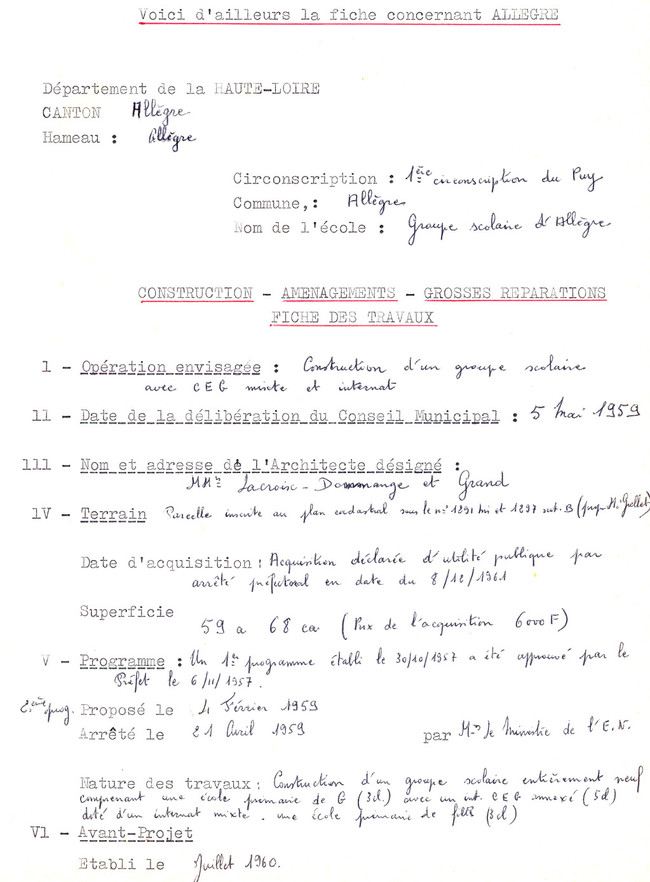 Voici d'ailleurs la fiche concernant ALLEGRE
Département de la HAUTE-LOIRE
CANTON Allègre
Hameau : Allègre
Circonscription : 1ère circonscription du Puy
Commune,: Allègre
Nom de l'école : Groupe scolaire d'Allègre
CONSTRUCTION - AMENAGEMENTS - GROSSES REPARATIONS
FICHE DES TRAVAUX
1 - Opération envisagée : Construction d'un groupe scolaire
avec CEG mixte et internat
11 - Date de la délibération du Conseil Municipal : 5 Mai 1959
111 - Nom et adresse de l'Architecte désigné :
MMrs Lacroix - Dommange et Grand
1V - Terrain Parcelle inscrite au plan cadastral sous le n° 1291 bis et 1297 sect. B (prop. M. Grellet)
Date d'acquisition : Acquisition déclarée d'utilité publique par
arrêté préfectoral en date du 8/12/1961
Superficie 59 a 68 ca (Prix de l'acquisition 6000 F)
V - Programme : Un 1er programme établi le 30/10/1957 a été approuvé par le
Préfet le 6/11/1957.
2ème prog. Proposé le 4 Février 1959
Arrêté le 21 Avril 1959 par Mr le Ministre de l'E.N.
Nature des travaux : Construction d'un groupe scolaire entièrement neuf
comprenant une école primaire de G (3cl.) avec un int. CEG annexé (5cl)
doté d'un internat mixte. une école primaire de filles (3cl)
V1 - Avant-Projet
Etabli le Juillet 1960.